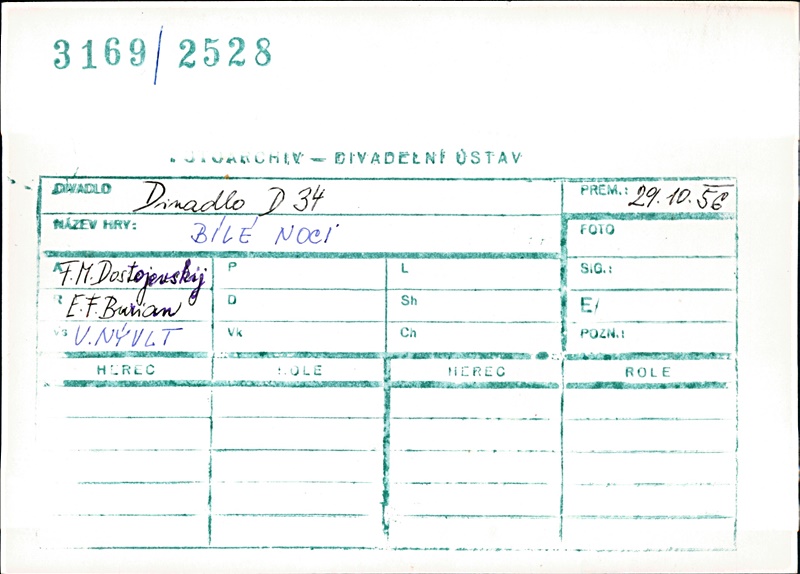 3169/2528
FOTOARCHIV – DIVADELNÍ ÚSTAV
DIVADLO Divadlo D 34 PREM.: 29.10.56
NÁZEV HRY: BÍLÉ NOCI FOTO
A F.M. Dostojevskij P L SIG.:
R E.F. Burian D Sh E/
Vs V. NÝVLT Vk Ch POZN.:
HEREC ROLE HEREC ROLE